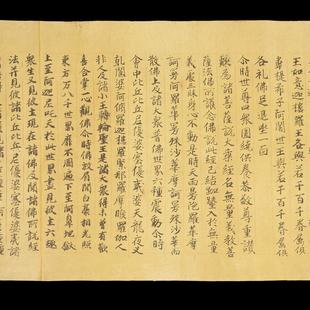 王如意迦樓羅王各與若干百千眷屬俱
韋提希子阿闍世王與若干百千眷屬俱
各礼佛足退坐一面
尒時世尊四衆圍繞供養恭敬尊重讃
歎為諸菩薩說大乗経名無量義教菩
薩法佛所護念佛說此経已結跏趺坐入於無量
義處三昧身心不動是時天雨曼陁羅華摩
訶曼陁羅華曼殊沙華摩訶曼殊沙華而
散佛上及諸大衆普佛世界六種震動尒時
會中比丘比丘尼優婆塞優婆夷天龍夜叉
乾闥婆阿修羅迦樓羅緊那羅摩睺羅伽人
非人及諸小王轉輪聖王是諸大衆得未曾有歡
喜合掌一心觀佛尒時佛放眉間白豪相光照
東方万八千世界靡不周遍下至阿鼻地獄
上至阿迦尼吒天於此世界盡見彼土六趣
衆生又見彼土現在諸佛及聞諸佛所說経
法并見彼諸比丘比丘尼優婆塞優婆夷諸